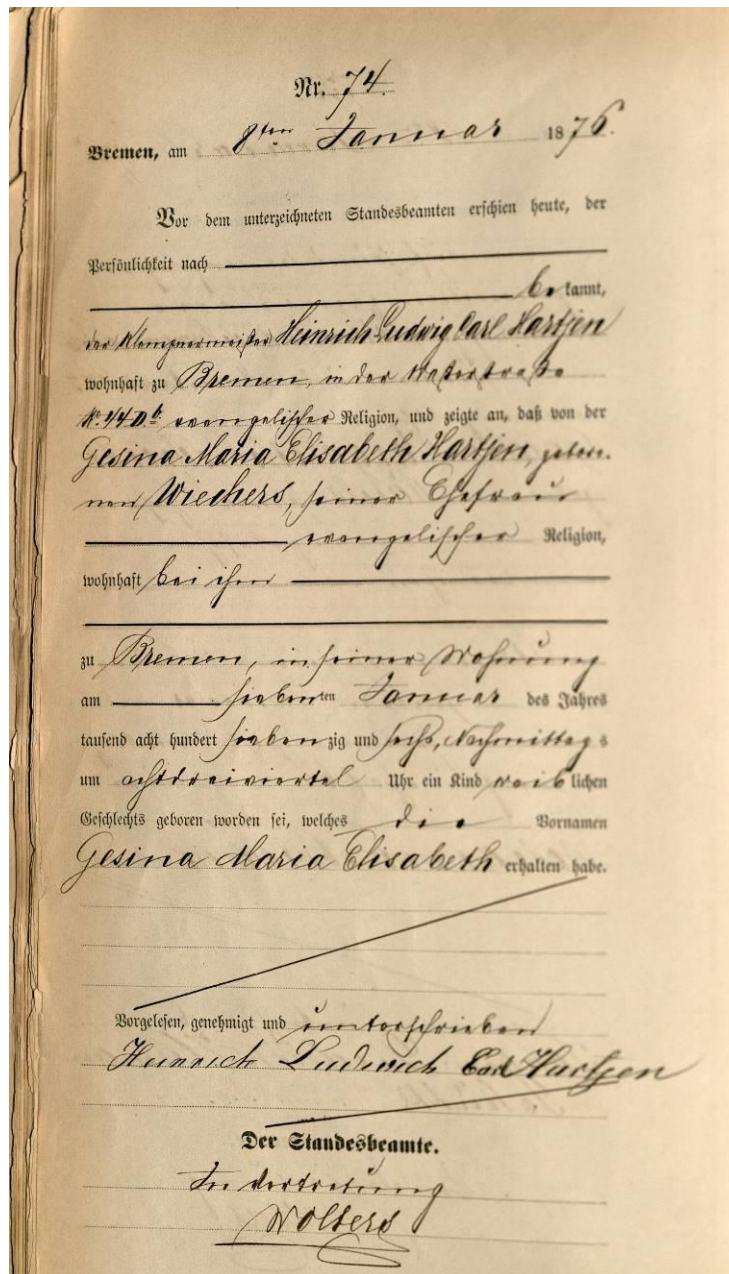 Nr. 74.
Bremen, am 8ten Januar 1876.
Vor dem unterzeichneten Standesbeamten erschien heute, der
Persönlichkeit nach
bekannt,
der Klempnermeister Heinrich Ludwig Carl Hartjen
wohnhaft zu Bremen, in der
evangelischer Religion, und zeigte an, daß von der
Gesina Maria Elisabeth Hartjen, gebore-
nen Wiechers, seiner Ehefrau
evangelischer Religion,
wohnhaft bei ihm
zu Bremen, in seiner Wohnung
am siebenten Januar des Jahres
tausend acht hundert siebenzig und sechs, Nachmittags
um achtdreiviertel Uhr ein Kind weiblichen
Geschlechts geboren worden sei, welches die Vornamen
Gesina Maria Elisabeth erhalten habe.
Vorgelesen, genehmigt und unterschrieben
Heinrich Ludwich Carl Hartjen
Der Standesbeamte.
In Vertretung
Wolters